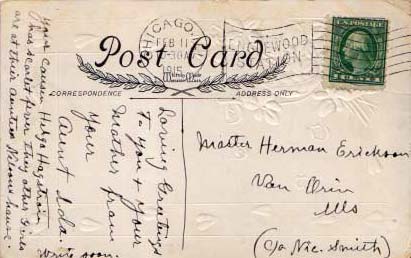 CHICAGO
FEB 11
9-30A
1915
ENGLEWOOD
STATION
U.S. POSTAGE
Post Card
CORRESPONDENCE
ADDRESS ONLY
Loving Greetings
to you & your
Mother from
your
Aunt Ida.
Write soon.
your cousin Helge Hagstrom
has scarlet fever they other Girls
are at their aunties Nilsons house.
Master Herman Erickson
Van Orin
Ills
(c/o Nic. Smith)